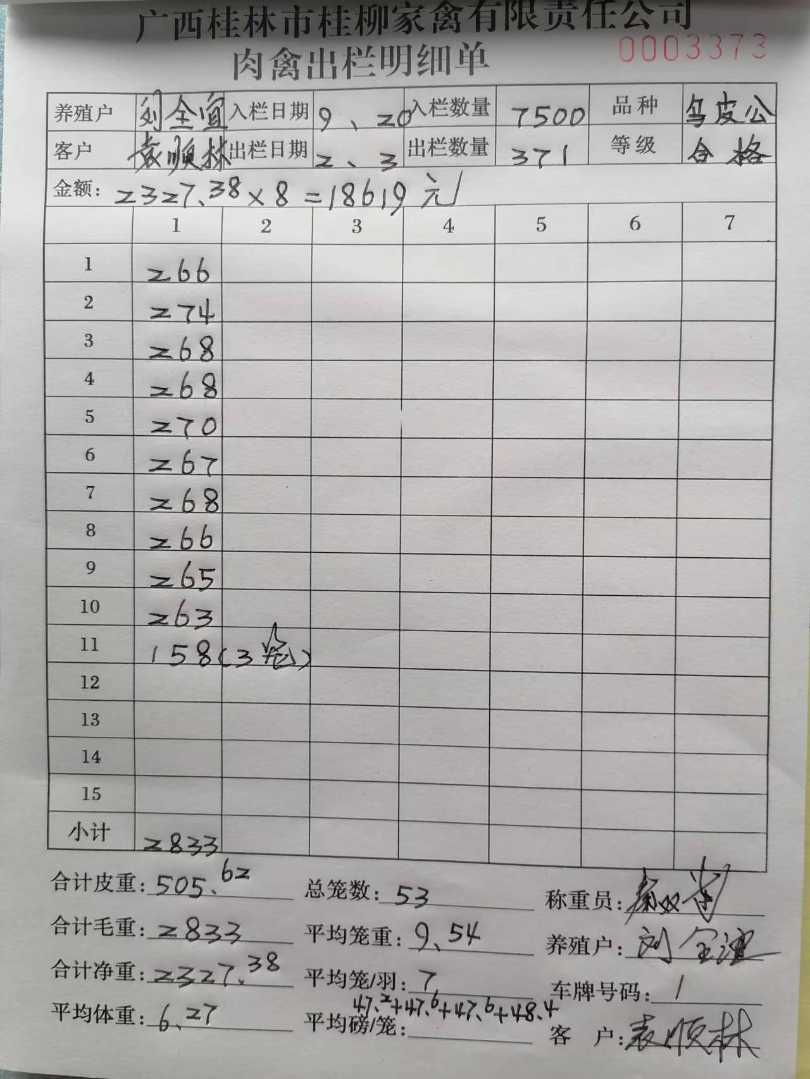 广西桂林市桂柳家禽有限责任公司
肉禽出栏明细单 0003373
养殖户 刘全宜 入栏日期 9、20 入栏数量 7500 品种 乌皮公
客户 袁顺林 出栏日期 2、3 出栏数量 371 等级 合格
金额: 2327.38×8=18619元
1 2 3 4 5 6 7
1 266
2 274
3 268
4 268
5 270
6 267
7 268
8 266
9 265
10 263
11 158(3笼)
12
13
14
15
小计 2833
合计皮重: 505.62 总笼数: 53 称重员:
合计毛重: 2833 平均笼重: 9.54 养殖户: 刘全宜
合计净重: 2327.38 平均笼/羽: 7 车牌号码: 1
平均体重: 6.27 平均磅/笼: 47.2+47.6+47.6+48.4 客 户: 袁顺林